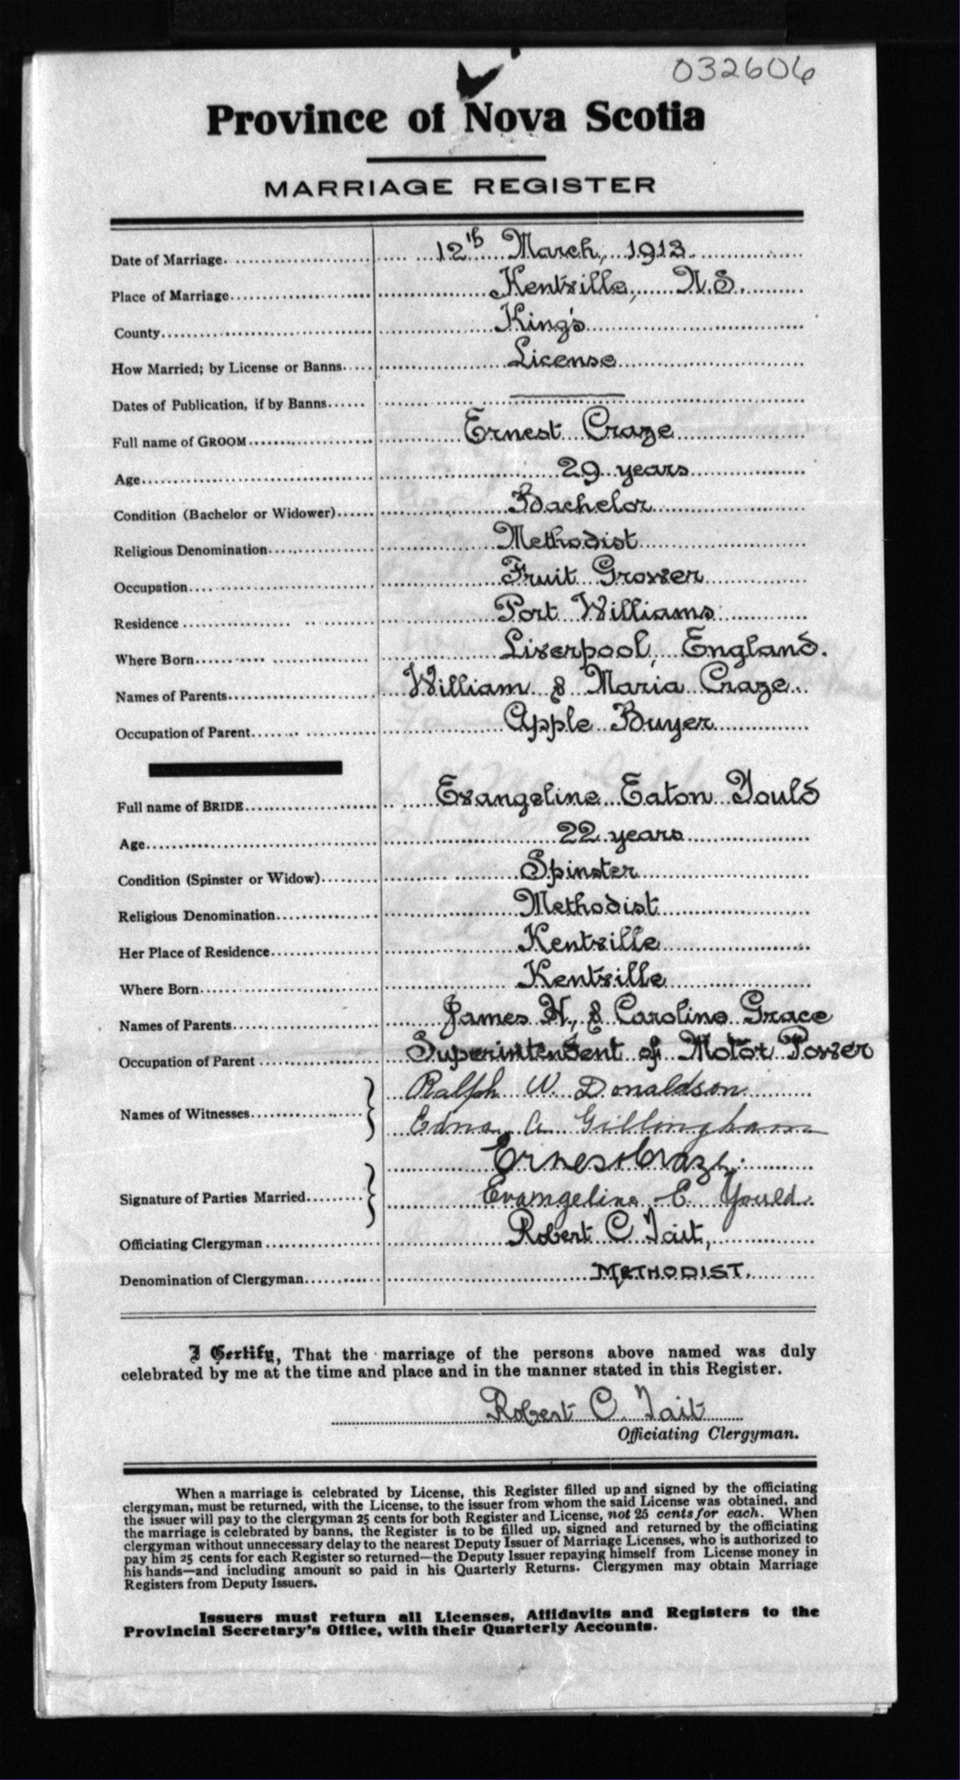 032606
Province of Nova Scotia
MARRIAGE REGISTER
Date of Marriage. 12th March, 1913.
Place of Marriage Kentville, N.S.
County King's
How Married; by License or Banns License
Dates of Publication, if by Banns
Full name of GROOM Ernest Craze
Age 29 years
Condition (Bachelor or Widower) Bachelor
Religious Denomination Methodist
Occupation Fruit Grower
Residence Port Williams
Where Born Liverpool, England.
Names of Parents William & Maria Craze
Occupation of Parent Apple Buyer
Full name of BRIDE Evangeline Eaton Yould
Age 22 years
Condition (Spinster or Widow) Spinster
Religious Denomination Methodist
Her Place of Residence Kentville
Where Born Kentville
Names of Parents James H., & Caroline Grace
Occupation of Parent Superintendent of Motor Power
Names of Witnesses Ralph W. Donaldson
Edna A Gillingham
Signature of Parties Married Ernest Craze
Evangeline E Yould.
Officiating Clergyman Robert C Tait,
Denomination of Clergyman METHODIST.
I Certify, That the marriage of the persons above named was duly
celebrated by me at the time and place and in the manner stated in this Register.
Robert C. Tait
Officiating Clergyman.
When a marriage is celebrated by License, this Register filled up and signed by the officiating
clergyman, must be returned, with the License, to the issuer from whom the said License was obtained, and
the issuer will pay to the clergyman 25 cents for both Register and License, not 25 cents for each. When
the marriage is celebrated by banns, the Register is to be filled up, signed and returned by the officiating
clergyman without unnecessary delay to the nearest Deputy Issuer of Marriage Licenses, who is authorized to
pay him 25 cents for each Register so returned—the Deputy Issuer repaying himself from License money in
his hands—and including amount so paid in his Quarterly Returns. Clergymen may obtain Marriage
Registers from Deputy Issuers.
Issuers must return all Licenses, Affidavits and Registers to the
Provincial Secretary's Office, with their Quarterly Accounts.